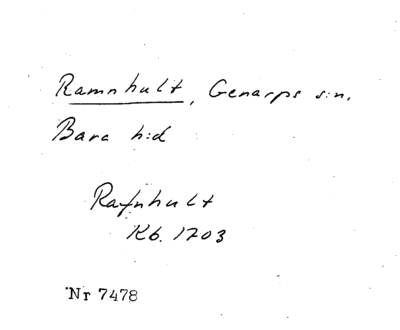 Ramnhult, Genarps s:n.
Bara h:d
Rafnhult
Kb. 1703
Nr 7478